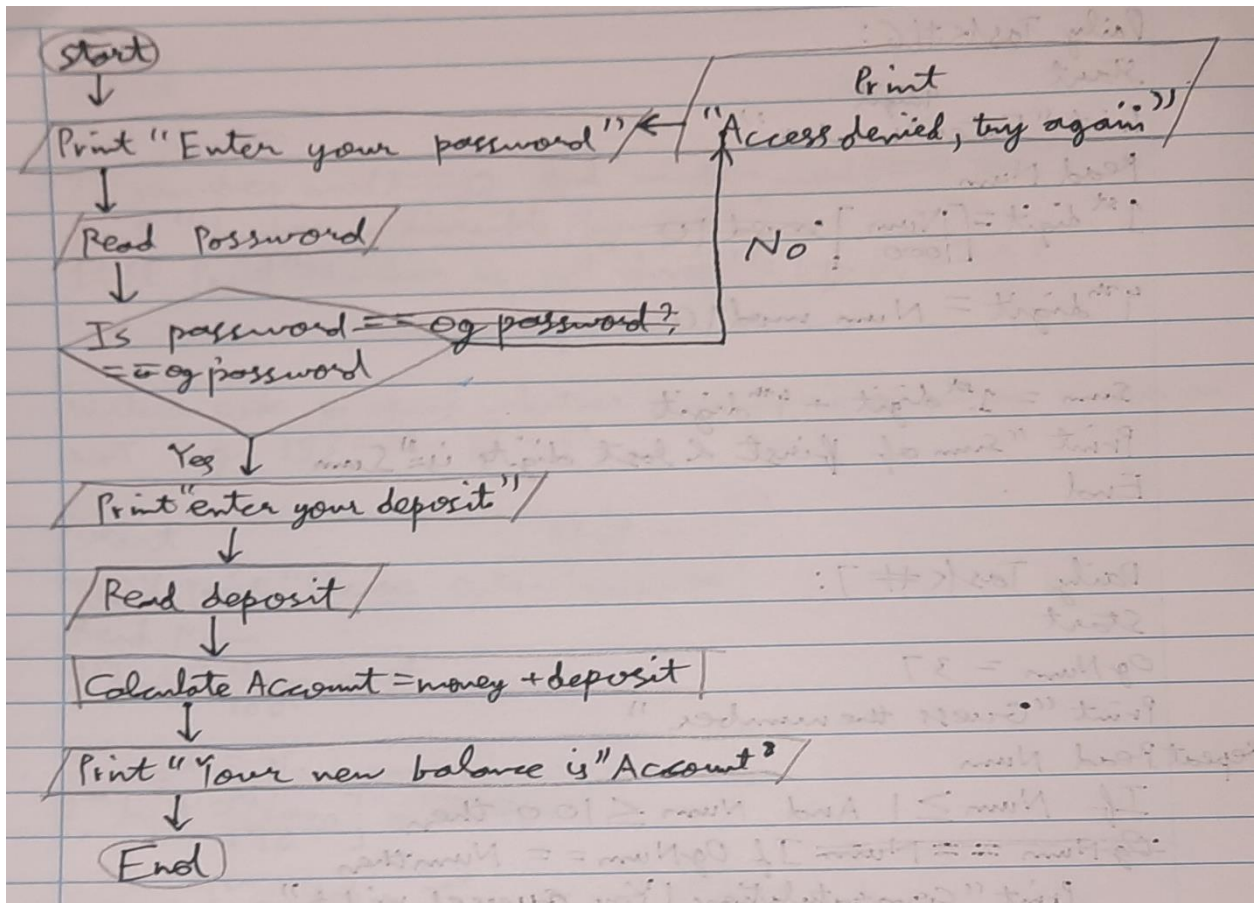 Start
Print
Print "Enter your password"
"Access denied, try again"
Read Password
No
Is password == og password?
== og password
Yes
Print "enter your deposit"
Read deposit
Calculate Account = money + deposit
Print "Your new balance is" Account"
End